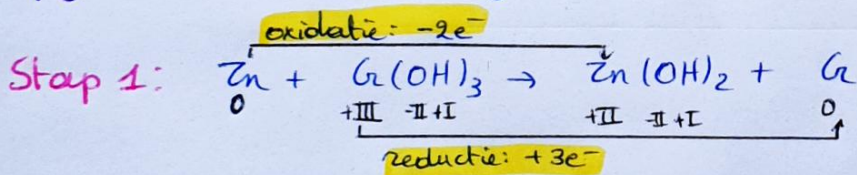 oxidatie: -2e⁻
Stap 1: Zn + Cr(OH)₃ → Zn(OH)₂ + Cr
0 +III -II +I +II -II +I 0
reductie: +3e⁻